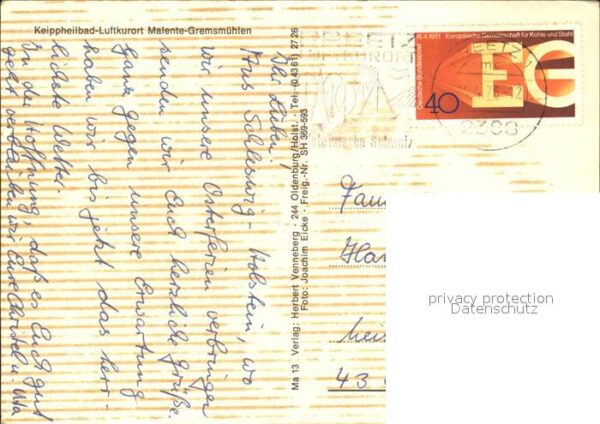 Keippheilbad-Luftkurort Malente-Gremsmühlen
Ihr Lieben!
Aus Schleswig-Holstein, wo
wir unsere Osterferien verbringen
senden wir Euch herzliche Grüße.
Ganz gegen unsere Erwartung
haben wir bis jetzt das herr-
lichste Wetter.
In der Hoffnung, daß es Euch gut
geht verbleiben wir Eure Christel u. Uta
Ma 13 Verlag: Herbert Venneberg · 244 Oldenburg/Holst. · Tel. (04361) 2726
Foto: Joachim Eicke · Freig.-Nr. SH 389-593
PREETZ
LUFTKURORT
Holsteinische Schweiz
PREETZ 1
2308
18.4.1951 Europäische Gemeinschaft für Kohle und Stahl
Deutsche Bundespost
40
Fam
Han
Meis
43
privacy protection
Datenschutz